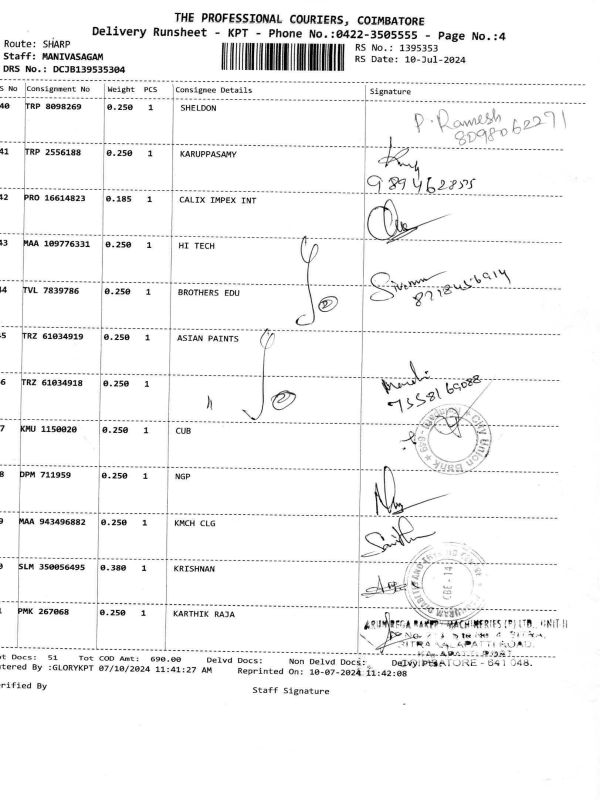 THE PROFESSIONAL COURIERS, COIMBATORE
Delivery Runsheet - KPT - Phone No.:0422-3505555 - Page No.:4
Route: SHARP
RS No.: 1395353
Staff: MANIVASAGAM
RS Date: 10-Jul-2024
DRS No.: DCJB139535304
S No Consignment No Weight PCS Consignee Details Signature
40 TRP 8098269 0.250 1 SHELDON
P. Ramesh
8098062271
41 TRP 2556188 0.250 1 KARUPPASAMY
42 PRO 16614823 0.185 1 CALIX IMPEX INT
43 MAA 109776331 0.250 1 HI TECH
44 TVL 7839786 0.250 1 BROTHERS EDU
5 TRZ 61034919 0.250 1 ASIAN PAINTS
6 TRZ 61034918 0.250 1 "
7558169088
7 KMU 1150020 0.250 1 CUB
City Union Bank
8 DPM 711959 0.250 1 NGP
9 MAA 943496882 0.250 1 KMCH CLG
0 SLM 350056495 0.380 1 KRISHNAN
CBE - 14
1 PMK 267068 0.250 1 KARTHIK RAJA
MACHINERIES (P) LTD., UNIT II
KALAPATTI ROAD,
KALAPATTI POST,
COIMBATORE - 641 048.
ot Docs: 51 Tot COD Amt: 690.00 Delvd Docs: Non Delvd Docs:
ntered By :GLORYKPT 07/10/2024 11:41:27 AM Reprinted On: 10-07-2024 11:42:08
erified By
Staff Signature